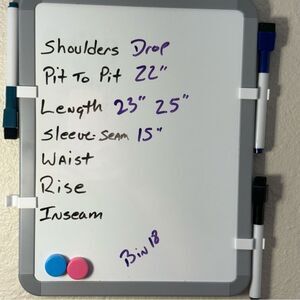 Shoulders Drop
Pit To Pit 22"
Length 23" 25"
Sleeve-Seam 15"
Waist
Rise
Inseam
Bin 18